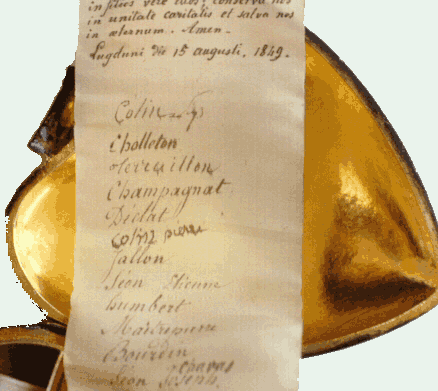 in filios vere tuos: conserva nos
in unitate caritatis et salva nos
in æternum. Amen.
Lugduni die 15 augusti. 1849.
Colin
Cholleton
Champagnat
Déclat
Colin pierre
Jallon
Séon Etienne
humbert
Maitrepierre
Bourdin
Chavas
Séon Joseph.